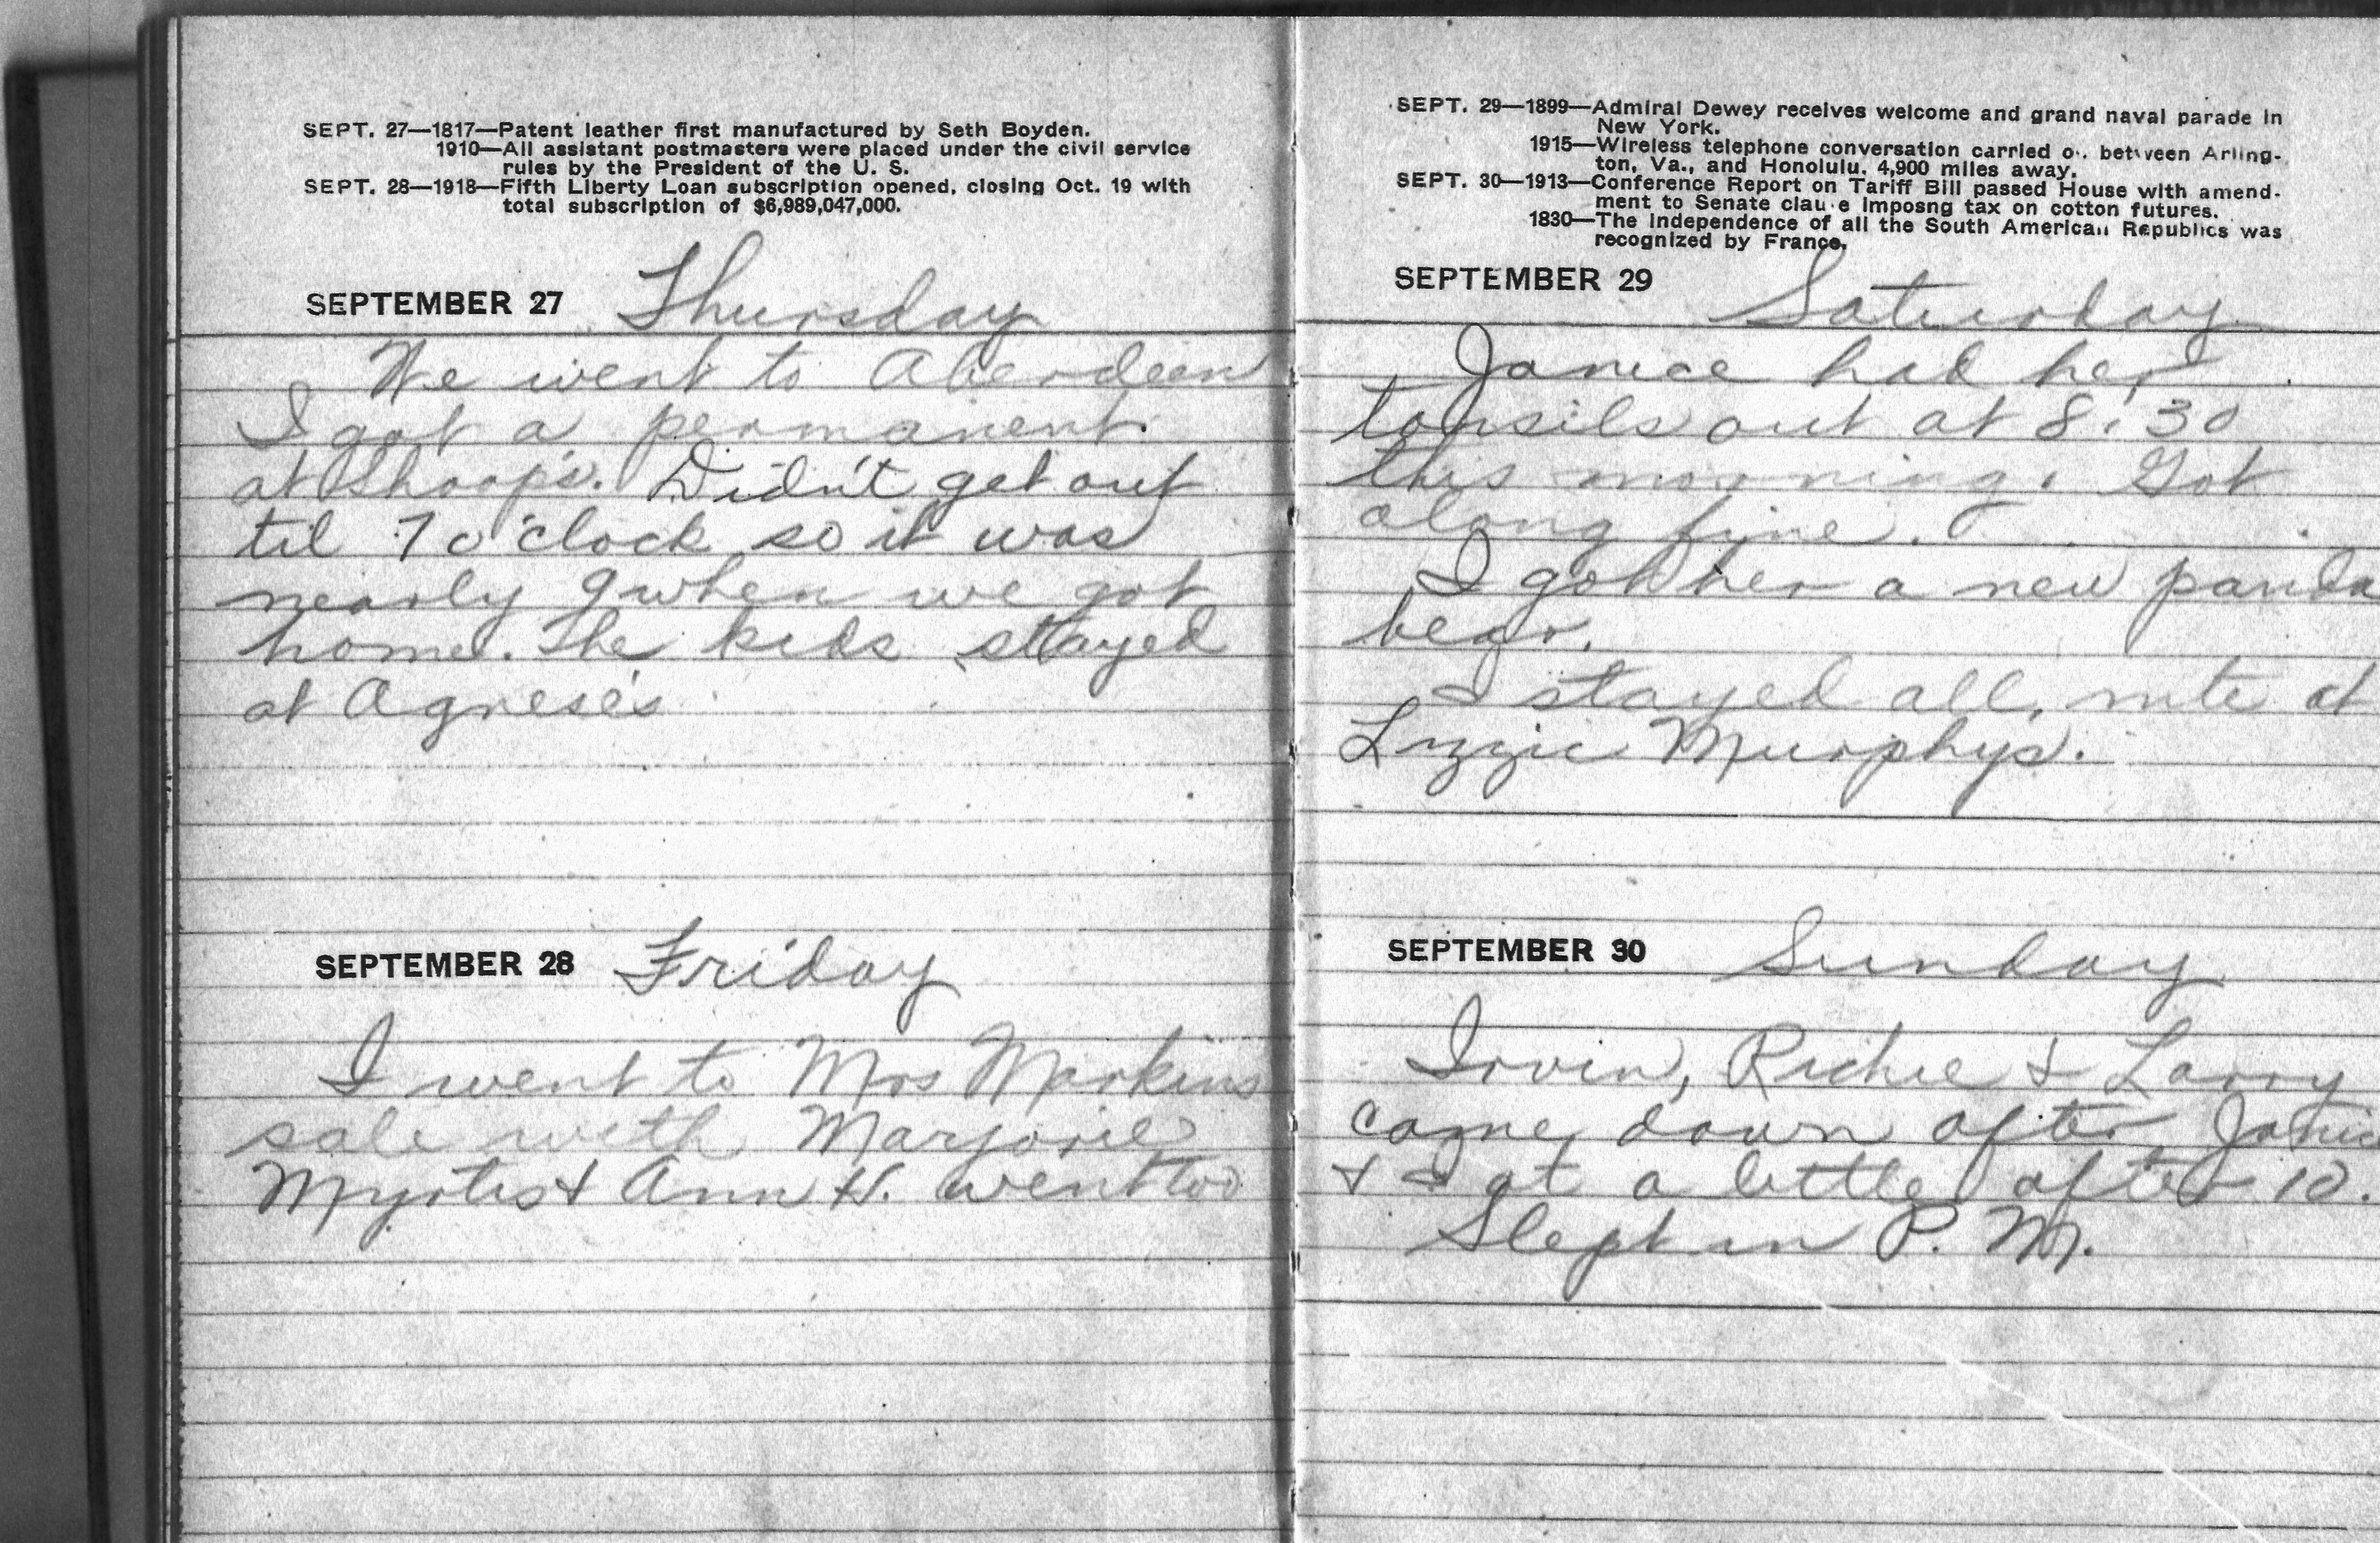 SEPT. 27—1817—Patent leather first manufactured by Seth Boyden.
1910—All assistant postmasters were placed under the civil service
rules by the President of the U. S.
SEPT. 28—1918—Fifth Liberty Loan subscription opened, closing Oct. 19 with
total subscription of $6,989,047,000.
SEPTEMBER 27 Thursday
We went to Aberdeen
I got a permanent
at Shoop's. Didn't get out
til 7 o'clock so it was
nearly 9 when we got
home. The kids stayed
at Agnese's
SEPTEMBER 28 Friday
I went to Mrs Markins
sale with Marjorie
Myrtis & Ann H. went too
SEPT. 29—1899—Admiral Dewey receives welcome and grand naval parade in
New York.
1915—Wireless telephone conversation carried o. between Arling-
ton, Va., and Honolulu, 4,900 miles away.
SEPT. 30—1913—Conference Report on Tariff Bill passed House with amend-
ment to Senate clau e imposng tax on cotton futures.
1830—The Independence of all the South American Republics was
recognized by France.
SEPTEMBER 29 Saturday
Janice had her
tonsils out at 8:30
this morning. Got
along fine.
I got her a new panda
bear.
I stayed all nite at
Lizzie Murphys.
SEPTEMBER 30 Sunday
Irvin, Richie & Larry
came down after Janic
& I at a little after 10.
Slept in P. M.